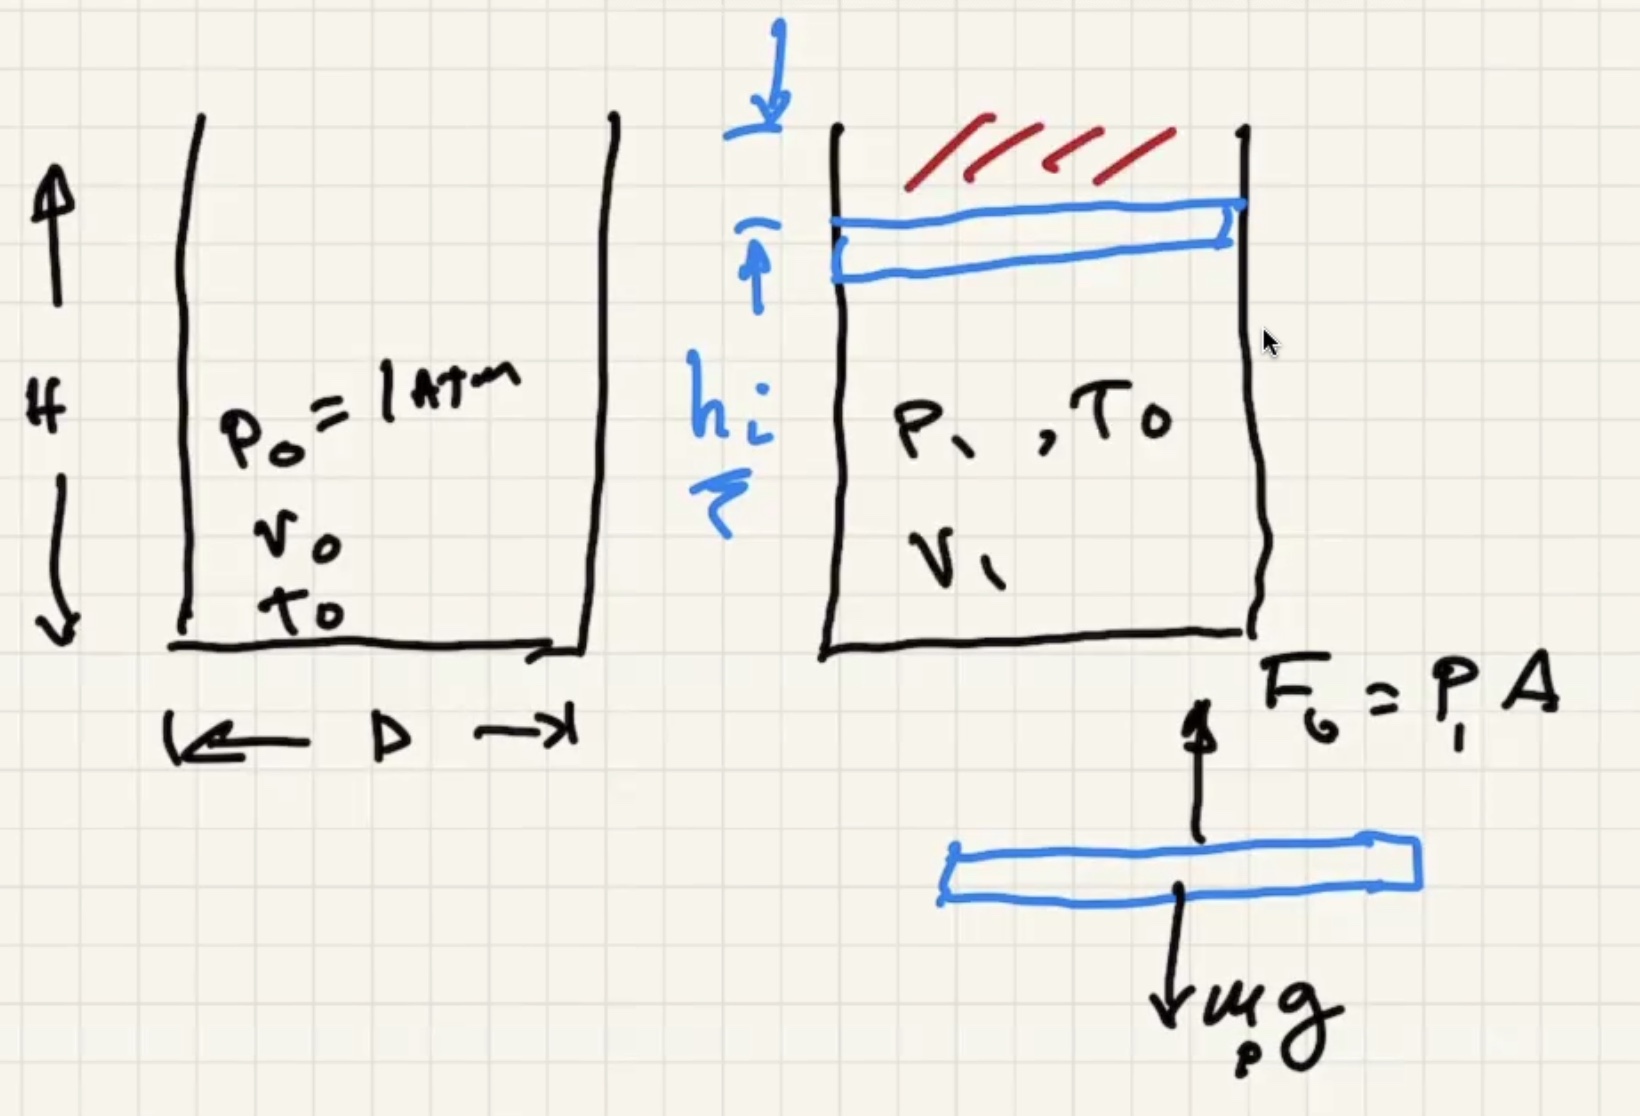 H
P₀ = 1 ATM
V₀
T₀
D
hᵢ
P₁ , T₀
V₁
F₆ = P₁ A
mₚg